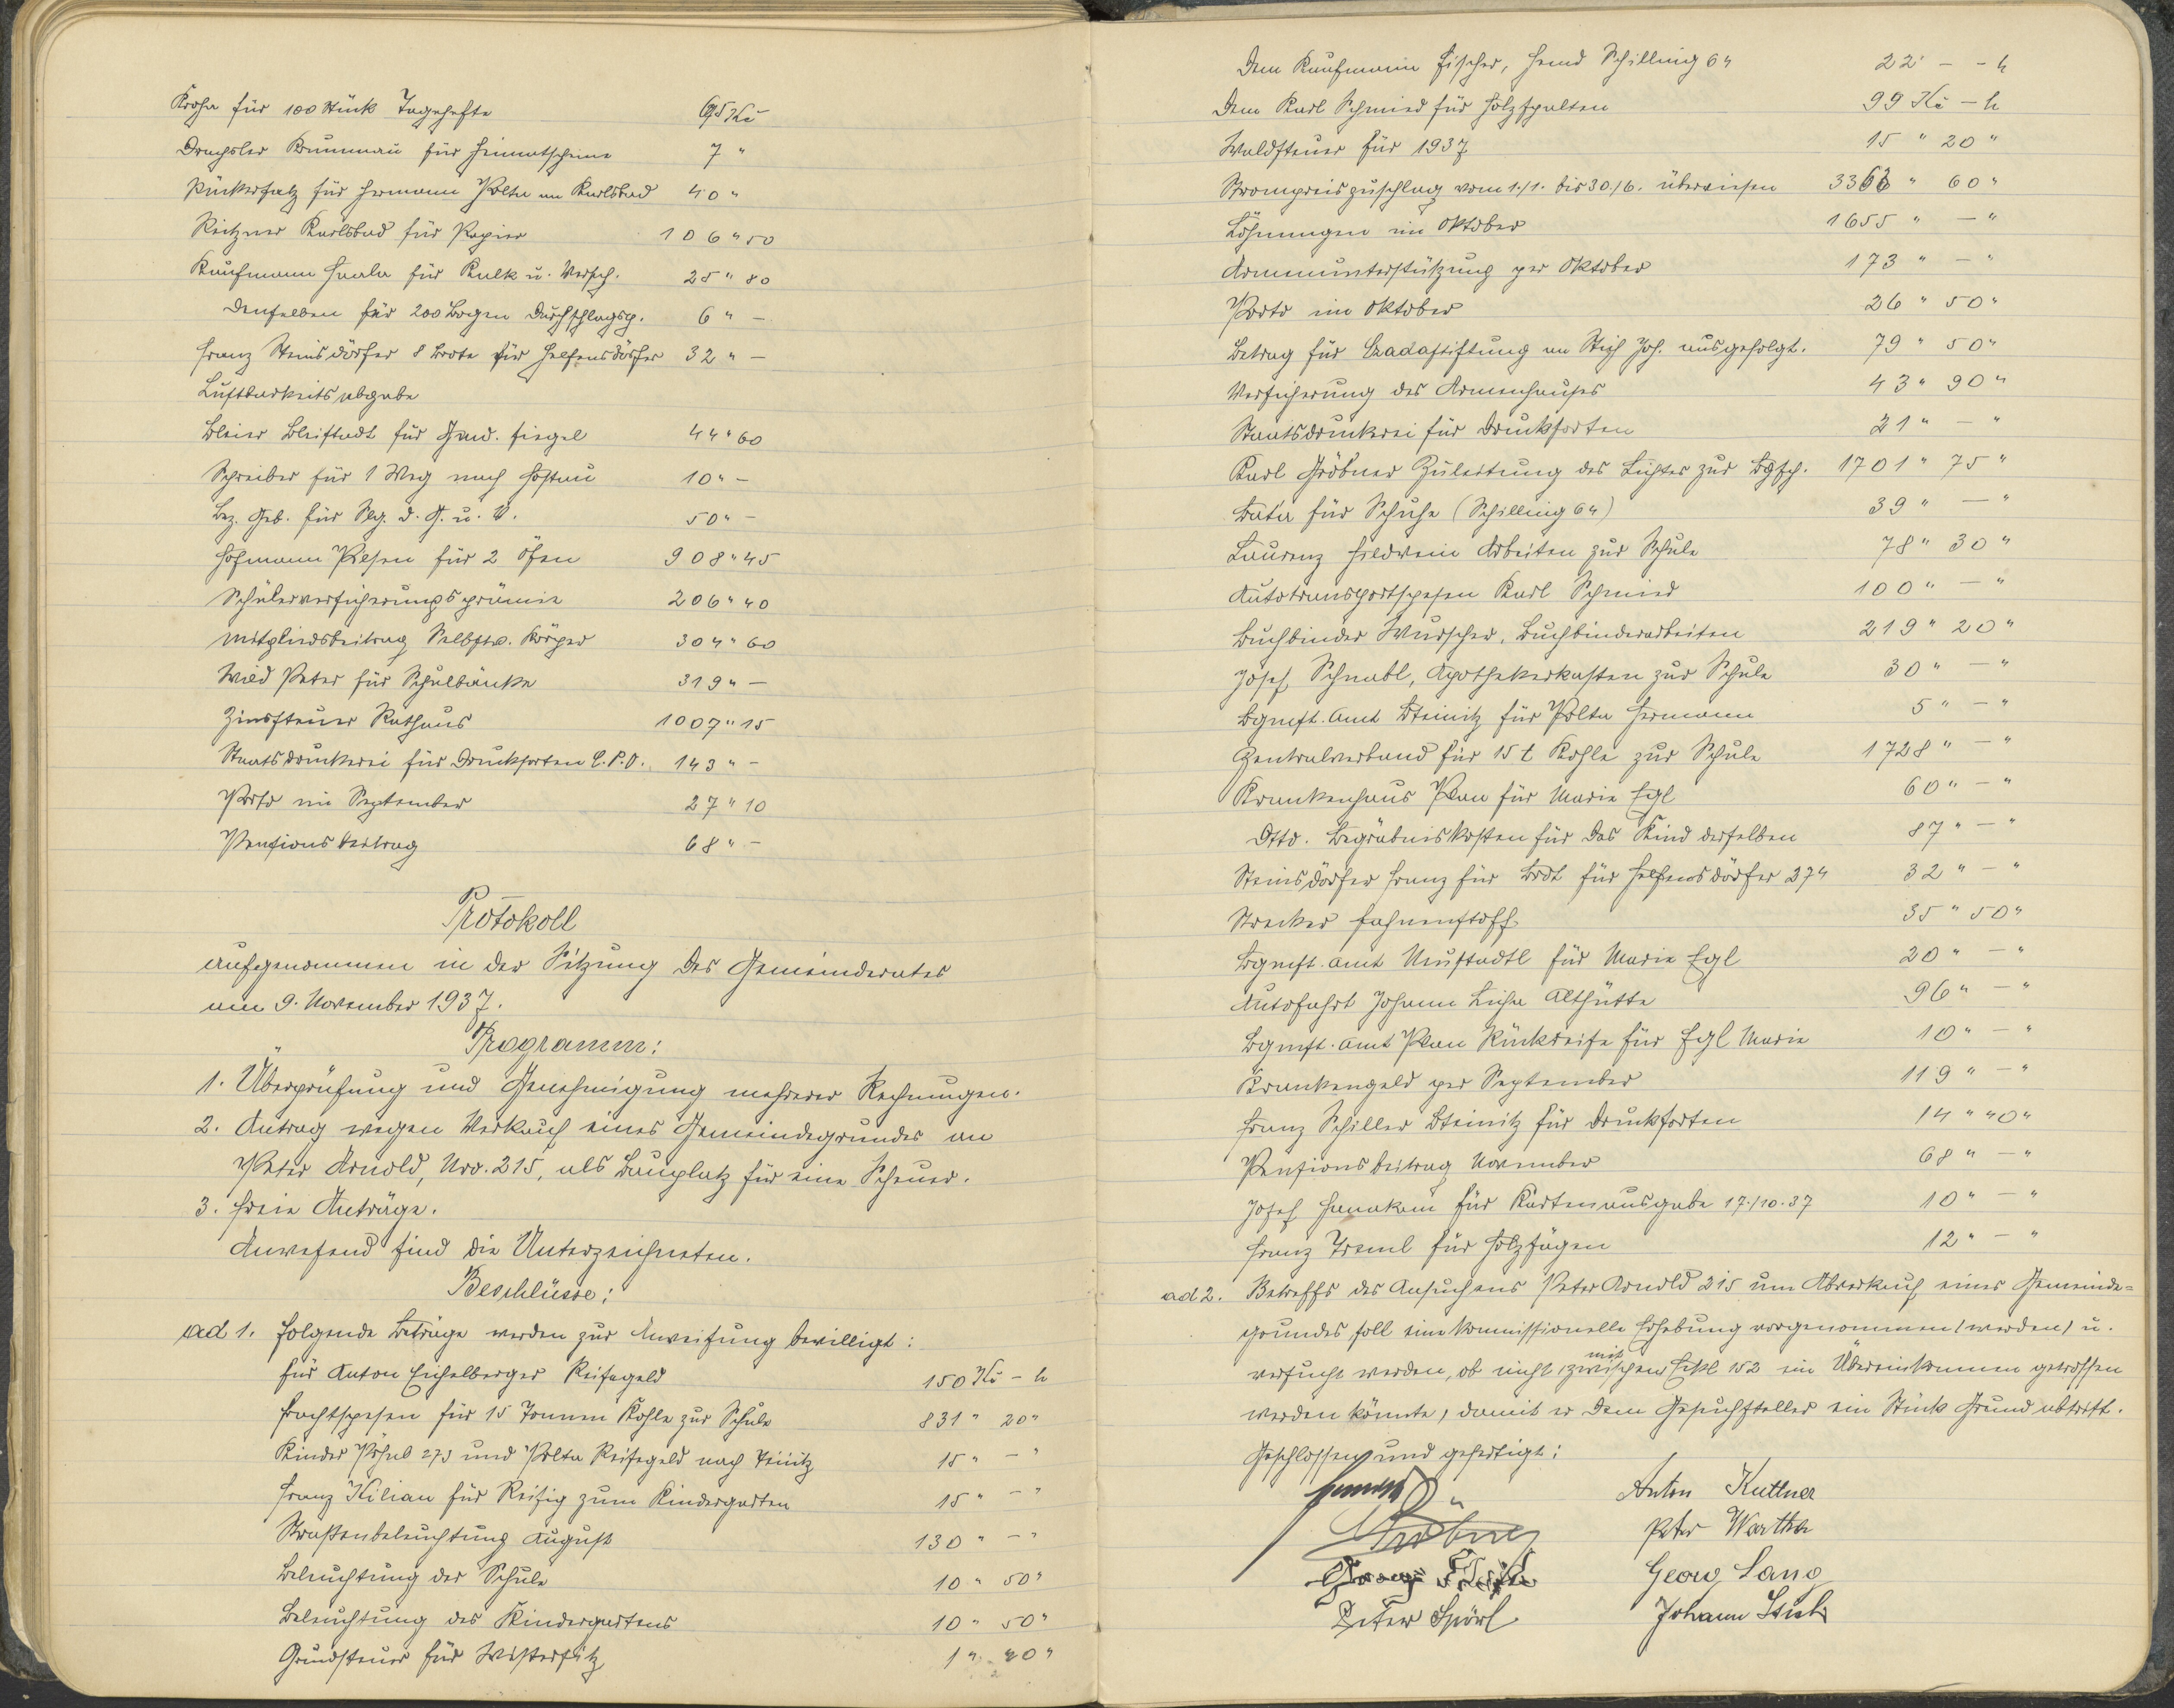 Krohe für 100 Stück Tagehefte 65 Kč
Drechsler Braunau für Heimatscheine 7 "
Rückersatz für Hermann Polta an Karlsbad 40 "
Reitzner Karlsbad für Papier 106 " 50
Kaufmann Haala für Kalk u. Versch. 25 " 80
Denselben für 200 Bogen Durchschlagp. 6 " –
Franz Steinsdörfer 8 Brote für Helfensdörfer 32 " –
Lustbarkeitsabgabe
Bleier Bleistadt für Gmd. Siegel 44 " 60
Schreiber für 1 Weg nach Hostau 10 " –
Bez. Geb. für Slg. d. G. u. V. 50 " –
Hofmann Pilsen für 2 Öfen 908 " 45
Schülerversicherungsprämie 206 " 40
Mitgliedsbeitrag Selbstv. Körper 304 " 60
Wild Peter für Schulbänke 319 " –
Zinssteuer Rathaus 1007 " 15
Staatsdruckerei für Drucksorten C.P.O. 143 " –
Porto im September 27 " 10
Pensionsbeitrag 68 " –
Protokoll
aufgenommen in der Sitzung des Gemeinderates
am 9. November 1937.
Programm:
1. Überprüfung und Genehmigung mehrerer Rechnungen.
2. Antrag wegen Verkauf eines Gemeindegrundes an
Peter Arnold, Nro. 215, als Bauplatz für eine Scheuer.
3. Freie Anträge.
Anwesend sind die Unterzeichneten.
Beschlüsse:
ad 1. Folgende Beträge werden zur Anweisung bewilligt:
für Anton Eichelberger Reisegeld 150 Kč – h
Frachtspesen für 15 Tonnen Kohle zur Schule 831 " 20 "
Kinder 273 und Polta Reisegeld nach Teinitz 15 " – "
Franz Kilian für Reisig zum Kindergarten 15 " – "
Straßenbeleuchtung August 130 " – "
Beleuchtung der Schule 10 " 50 "
Beleuchtung des Kindergartens 10 " 50 "
Grundsteuer für 1 " 20 "
Dem Kaufmann Fischer, Hemd Schilling 64 22 " – – h
Dem Karl Schmied für Holzspalten 99 Kč – h
Waldsteuer für 1937 15 " 20 "
Strompreiszuschlag vom 1./1. bis 30./6. überwiesen 3363 " 60 "
Löhnungen im Oktober 1655 " – "
Armenunterstützung per Oktober 173 " – "
Porto im Oktober 26 " 50 "
Betrag für Czadastiftung an Stich Joh. ausgefolgt. 79 " 50 "
Versicherung des Armenhauses 43 " 90 "
Staatsdruckerei für Drucksorten 21 " – "
Karl Gröbner Zuleitung des Lichtes zur Bgsch. 1701 " 75 "
Bata für Schuhe (Schilling 64) 39 " – "
Laurenz Arbeiten zur Schule 78 " 30 "
Autotransportspesen Karl Schmied 100 " – "
Buchbinder Wurscher, Buchbinderarbeiten 219 " 20 "
Josef Schnabl, Apothekerkasten zur Schule 30 " – "
Bgmst. Amt Steinitz für Polta Hermann 5 " – "
Zentralverband für 15 t Kohle zur Schule 1728 " – "
Krankenhaus Plan für Marie Egl 60 " – "
Dtto. Begräbniskosten für das Kind derselben 87 " – "
Steinsdörfer Franz für Brot für Helfensdörfer 274 32 " – "
Strecker Fahnenstoff 35 " 50 "
Bgmst. Amt Neustadtl für Marie Egl 20 " – "
Autofahrt Johann Althütte 96 " – "
Bgmst. Amt Plan Rückreise für Egl Marie 10 " – "
Krankengeld per September 119 " – "
Franz Schiller Steinitz für Drucksorten 14 " 40 "
Pensionsbeitrag November 68 " – "
Josef für Kartenausgabe 17./10.37 10 " – "
Franz Treml für Holzsägen 12 " – "
ad 2. Betreffs des Ansuchens Peter Arnold 215 um Abverkauf eines Gemeinde=
grundes soll eine kommissionelle Erhebung vorgenommen (werden) u.
mit
versucht werden, ob nicht (zwischen) Eckl 152 ein Übereinkommen getroffen
werden könnte, damit er dem Gesuchsteller ein Stück Grund abtritt.
Geschlossen und gefertigt:
Anton Kuttner
Gröbner Peter Wartha
Georg Lang
Peter Spörl Johann Stich